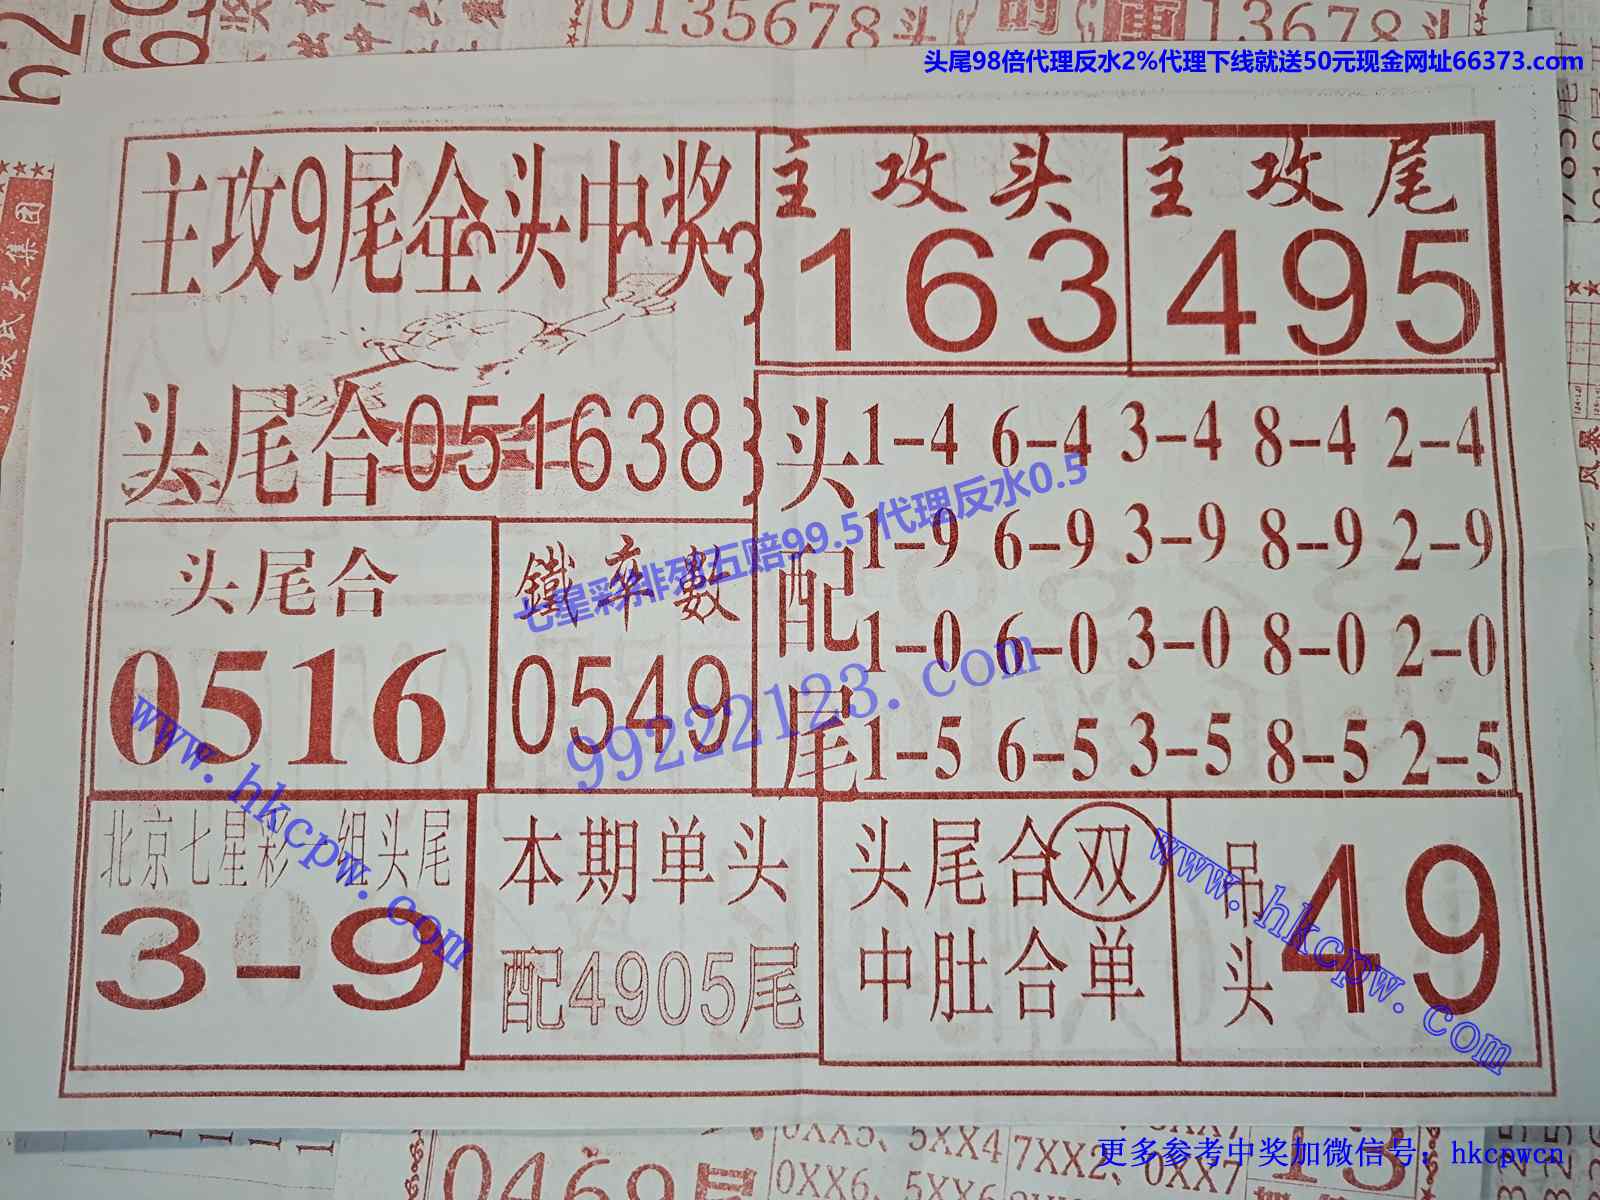 0135678头
13678头
头尾98倍代理反水2%代理下线就送50元现金网址66373.com
主攻9尾全头中奖
主攻头
163
主攻尾
495
头尾合051638
头配尾
1-4 6-4 3-4 8-4 2-4
1-9 6-9 3-9 8-9 2-9
1-0 6-0 3-0 8-0 2-0
1-5 6-5 3-5 8-5 2-5
七星彩排列五赔99.5 代理反水0.5
头尾合
0516
鐵率數
0549
99222123.com
www.hkcpw.com
北京七星彩一组头尾
3-9
本期单头
配4905尾
头尾合双
中肚合单
吊头49
www.hkcpw.com
0XX5、5XX4
7XX2、0XX7
0XX6、5XX6
0469尾
更多参考中奖加微信号：hkcpwcn